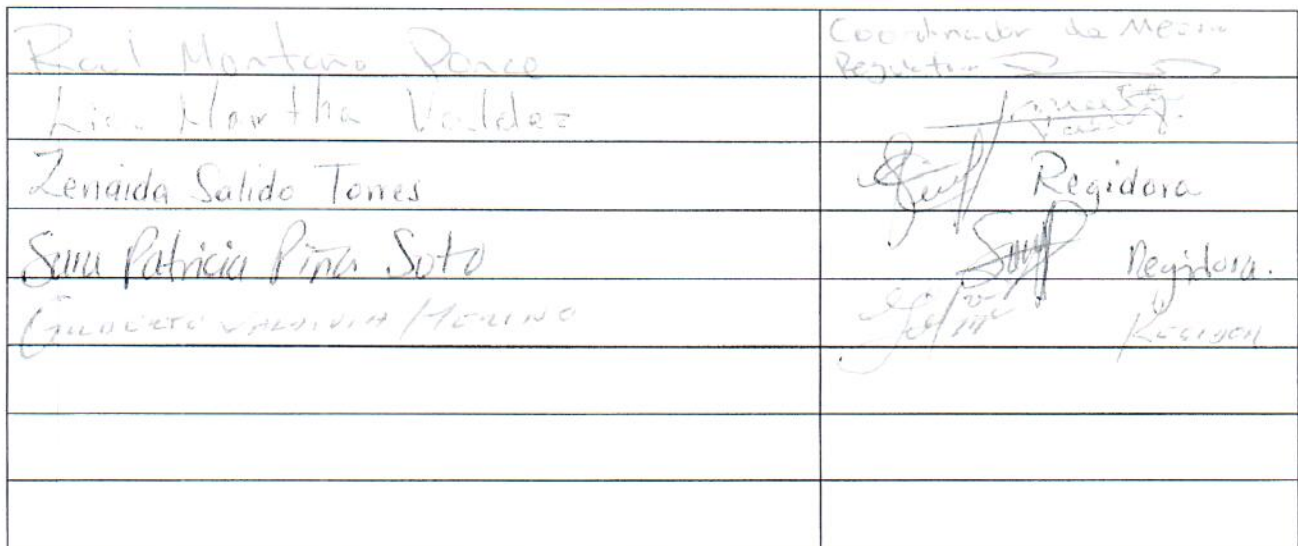 Raul Montano Ponce
Coordinador de Mejora
Regulatoria
Lic. Martha Valdez
Zenaida Salido Torres
Regidora
Sara Patricia Piña Soto
Regidora.
GILBERTO VALDIVIA MERINO
REGIDOR